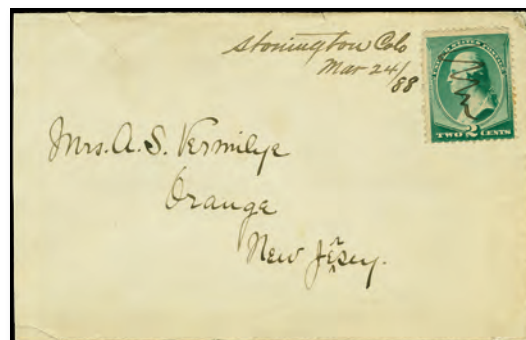 Stonington Colo
Mar 24/88
TWO 2 CENTS
Mrs. A. S. Vermilye
Orange
New Jersey.